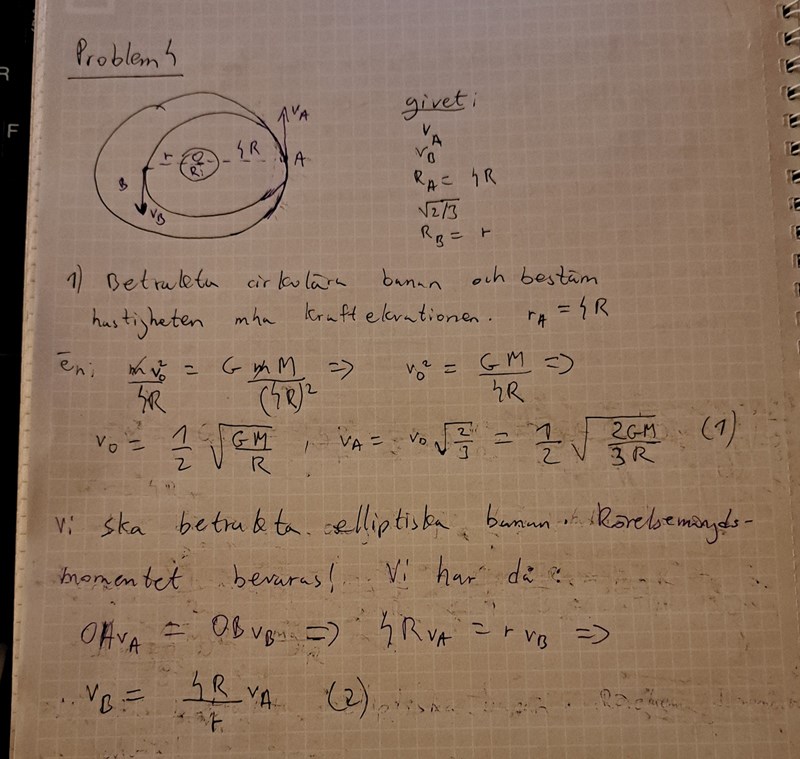 Problem 4
vA
4R
r
A
B
vB
givet:
vA
vB
RA = 4R
√2/3
RB = r
1) Betrakta cirkulära banan och bestäm
hastigheten mha kraftekvationen. rA = 4R
en: m v0²/4R = G mM/(4R)² => v0² = GM/4R =>
v0 = 1/2 √(GM/R) , vA = v0 √(2/3) = 1/2 √(2GM/3R) (1)
Vi ska betrakta elliptiska banan. Rörelsemängds-
momentet bevaras! Vi har då:
OA vA = OB vB => 4R vA = r vB =>
vB = 4R/r vA (2)